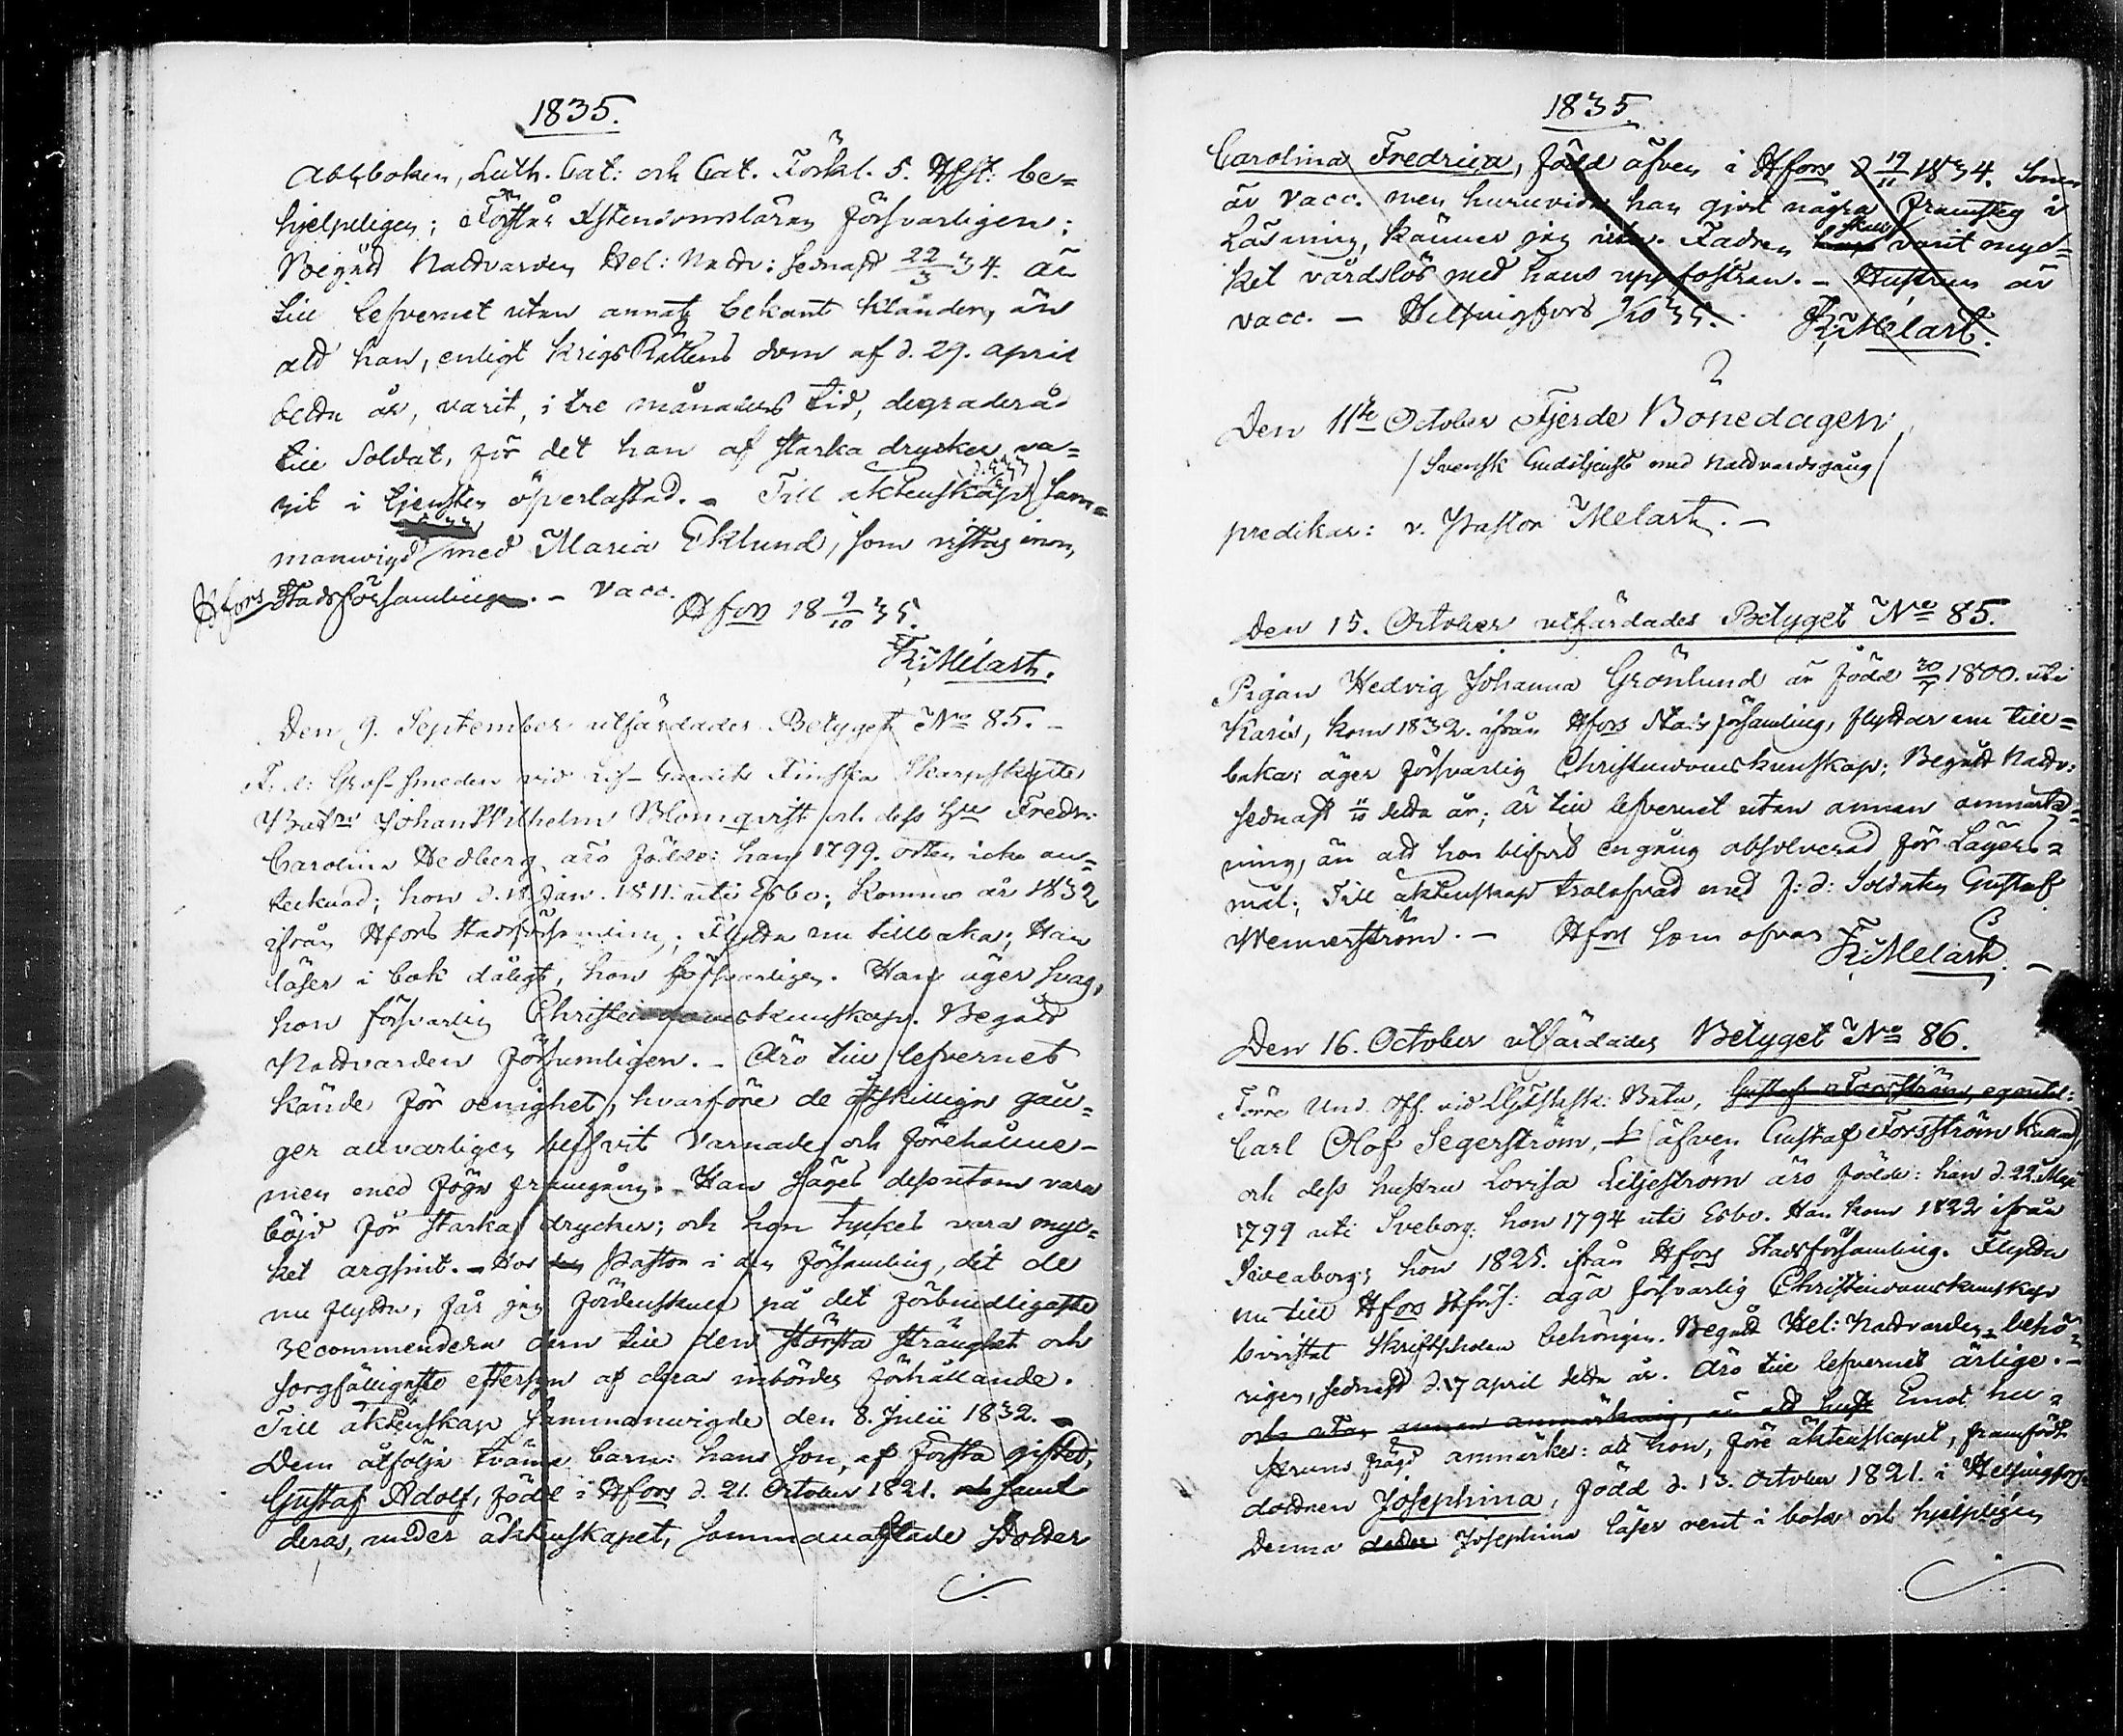 1835.
Abcboken, Luth. Cat: och Cat. Förkl. 5. Hfst: be=
hjelpeligen; Förstår Kristendomsläran försvarligen;
Begått Nattvarden Hel: Nattv: sednast 22/3 34. Är
till lefvernet utan annat bekant klander, än
att han, enligt KrigsRättens dom af d. 29. April
detta år, varit, i tre månaders tid, degraderad
till Soldat, för det han af starka drycker va=
rit i tjensten öfverlastad. - Till äktenskap sam=
manvigd med Maria Eklund, som vistas inom
Hfors Stadsförsamling. - Vacc.
Hfors 18 9/10 35.
Fr: Melart.
Den 9. September utfärdades Betyget No 85. -
F. d: Grof-Smeden vid Lif-Gardets Finska Skarpskytte
Batn Johan Wilhelm Blomqvist och dess Hu Fredr:
Carolina Hedberg äro födde: han 1799. orten icke an=
tecknad; hon d. 11. Jan. 1811. uti Esbo; Kommo år 1832
ifrån Hfors Stadsförsamling; Flytta nu tillbaka; Han
läser i bok dåligt, hon försvarligen. Han äger svag,
hon försvarlig Christendomskunskap. Begått
Nattvarden försumligen. - Äro till lefvernet
kände för oenighet, hvarföre de åtskilliga gån=
ger allvarligen blifvit varnade och förehållne -
men med föga framgång. Han säges dessutom vara
böjd för starka drycker; och hon tyckes vara myc=
ket argsint. - Hos Pastor i den församling, dit de
nu flytta, får jag fördenskull på det förbindligaste
recommendera dem till den största stränghet och
sorgfälligaste eftersyn af deras inbördes förhållande.
Till äktenskap sammanvigde den 8. Julii 1832. -
Dem åtfölja tvänne barn: hans son, af första giftet,
Gustaf Adolf, född i Hfors d. 21. October 1821. samt
deras, under äktenskapet, sammanaflade Dotter
1835.
Carolina Fredrica, född äfven i Hfors d 19/11 1834. Sonen
är vacc. men huruvida han gjort några framsteg i
Läsning, känner jag icke. Fadren skall varit myc=
ket vårdslös med hans uppfostran. - Hustrun är
vacc. - Helsingfors 9/10 35. Fr: Melart.
Den 11te October Fjerde Bönedagen
/Svensk Gudstjenst med Nattvardsgång/
predikar: v. Pastor Melart. -
Den 15. October utfärdades Betyget No 85.
Pigan Hedvig Johanna Grönlund är född 20/7 1800. uti
Karis, kom 1832. ifrån Hfors Stadsförsamling, flyttar nu till=
baka; äger försvarlig Christendomskunskap; Begått Nattv:
sednast 11/10 detta år; är till lefvernet utan annan anmärk=
ning, än att hon blifvit engång absolverad för Lägers=
mål; Till äktenskap trolofvad med f: d: Soldaten Gustaf
Wennerström. - Hfors som ofvan Fr: Melart. -
Den 16. October utfärdades Betyget No 86.
Förre Und. Off. vid Batn, Gustaf Forsström, egentel:
Carl Olof Segerström, (äfven Gustaf Forsström kallad)
och dess hustru Lovisa Liljeström äro födde: han d. 22. Maji
1799 uti Sveborg: hon 1794 uti Esbo. Han kom 1822 ifrån
Sveaborg; hon 1825. ifrån Hfors Stadsförsamling. Flytta
nu till Hfors; äga försvarlig Christendomskunskap
bivistat Skriftskolan behörigen. Begått Hel: Nattvarden behö=
rigen, sednast d. 17 April detta år. Äro till lefvernet ärlige. -
och utan annan anmärkning, än att Emot hu=
struns frägd anmärkes: att hon, före äktenskapet, framfödt
dottren Josephina, född d. 13. October 1821. i Helsingfors.
Denna Josephina läser rent i bok och hjelpligen